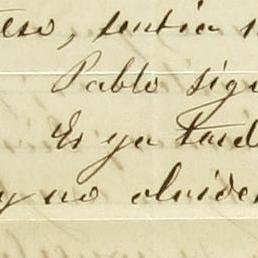 eso, sentia
Pablo sig
Es ya tard
y no olvide